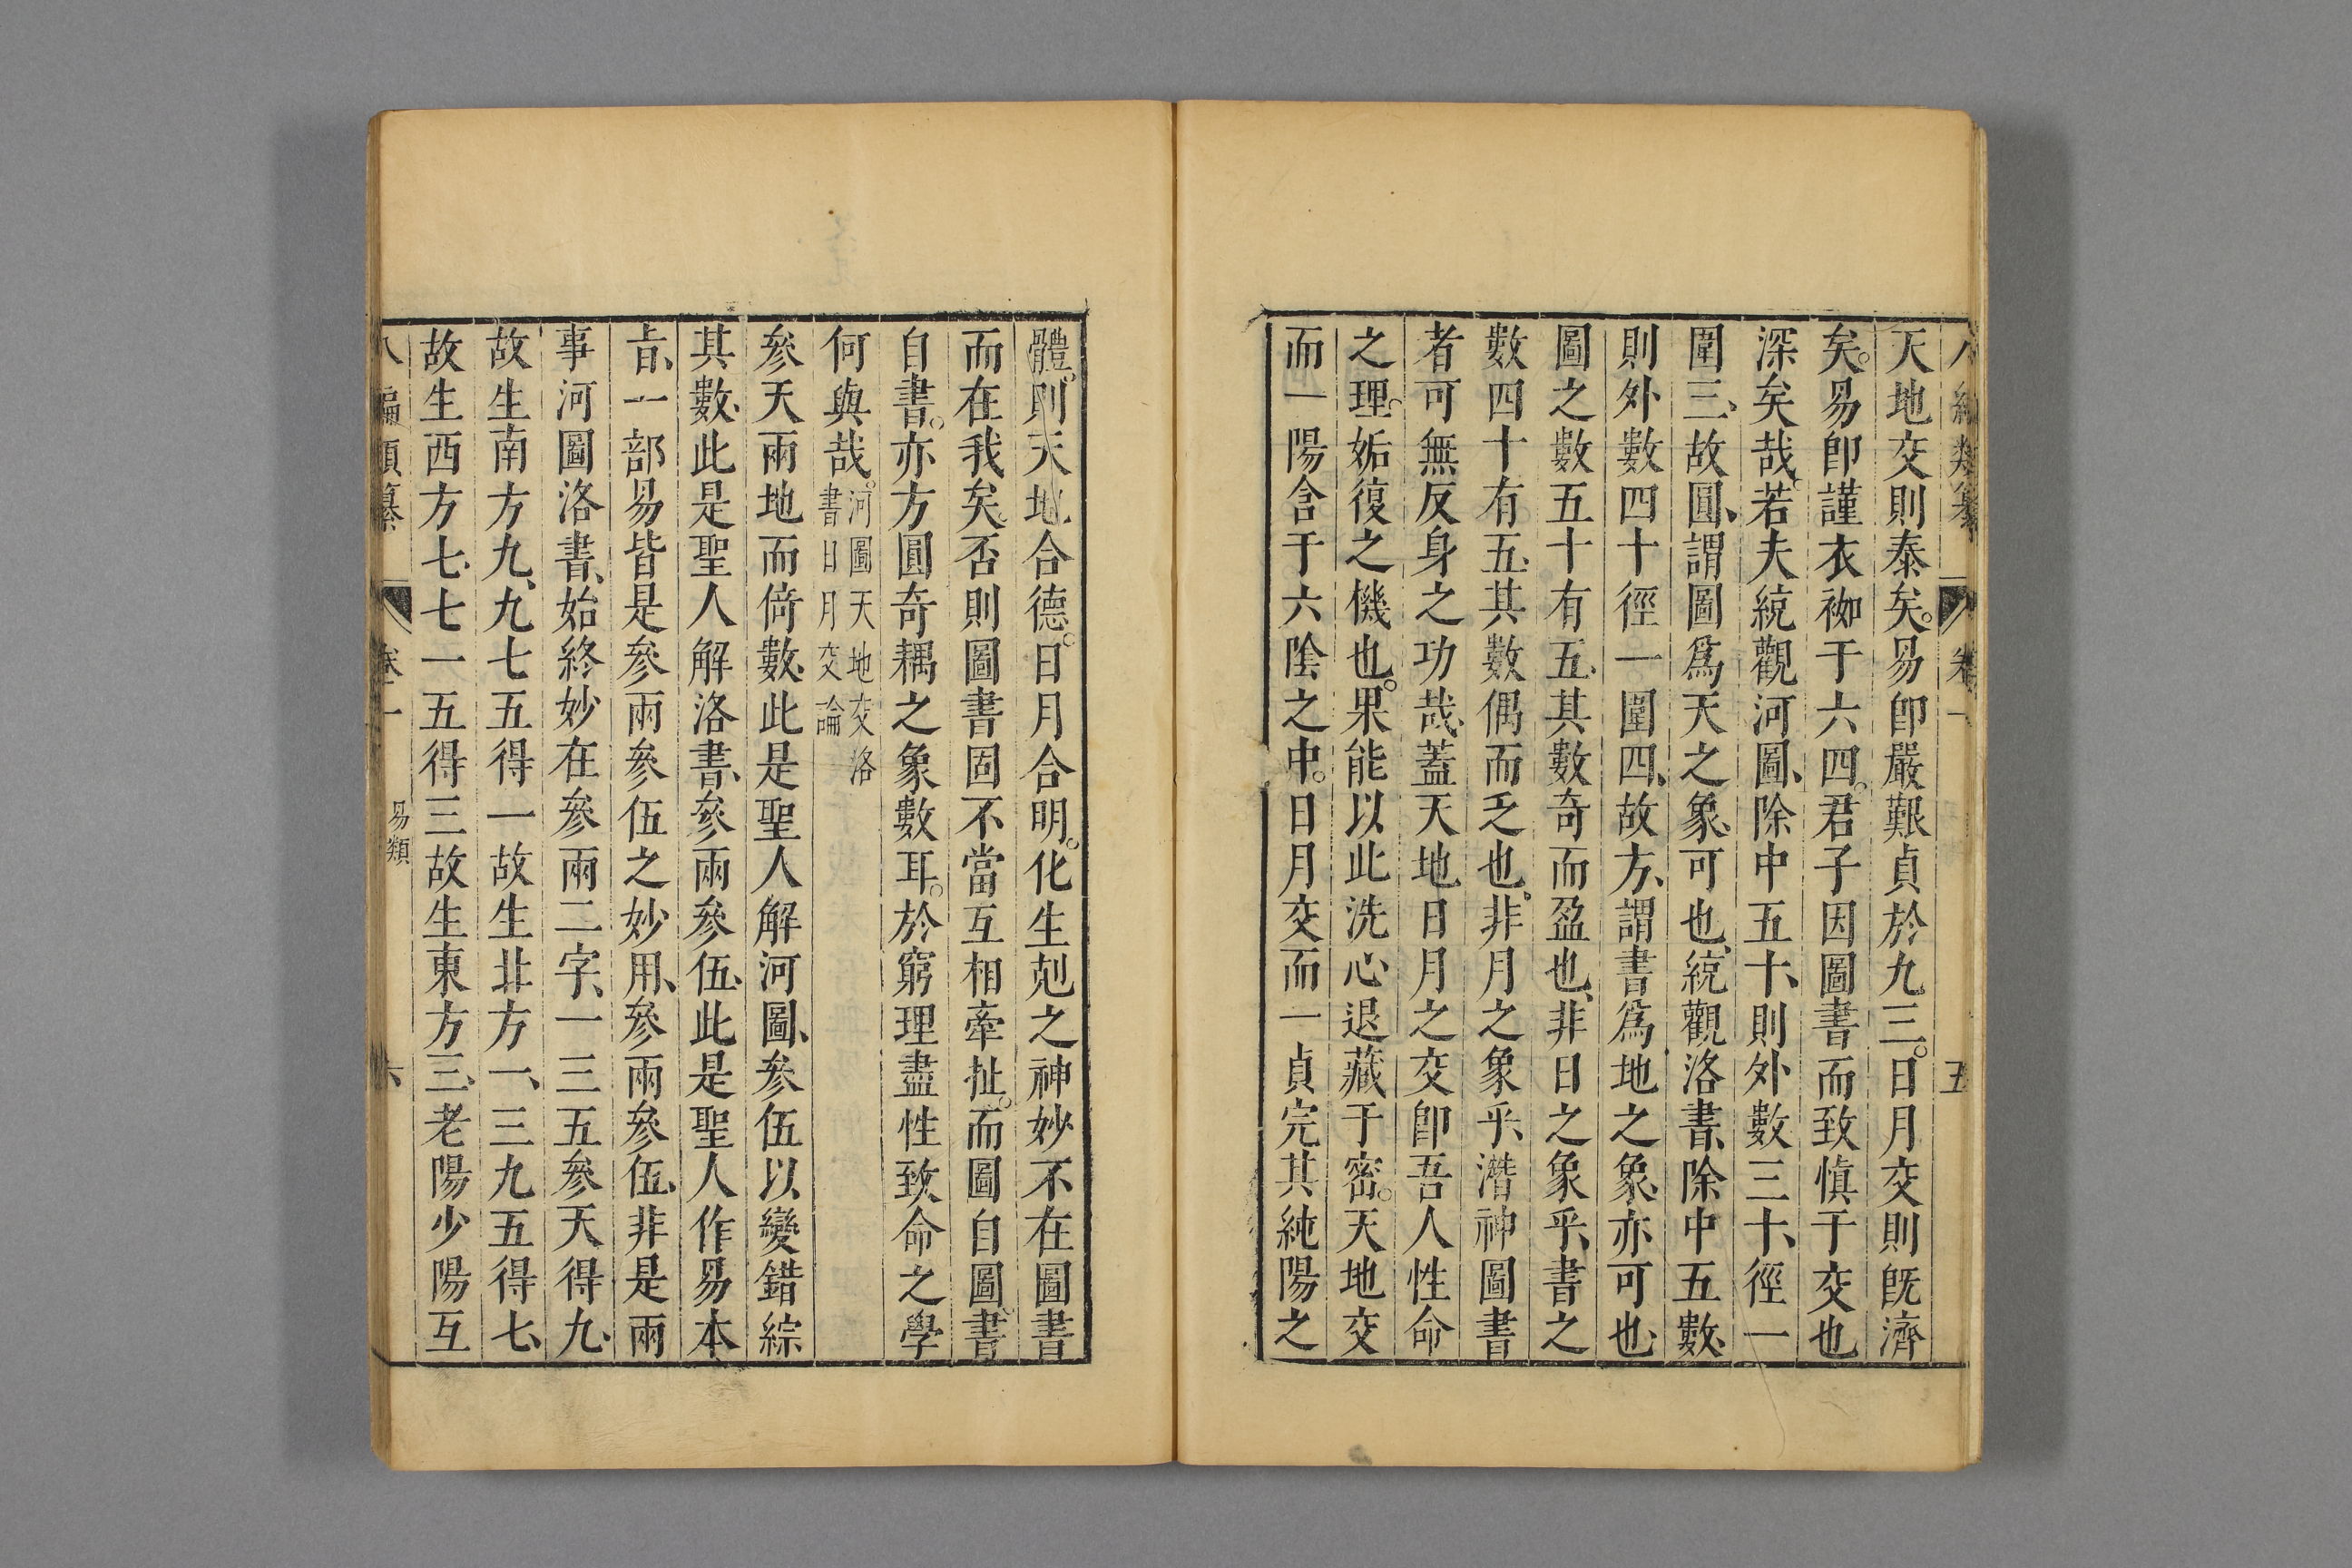 八編類纂 卷一 五
天地交則泰矣。易卽嚴艱貞於九三。日月交則旣濟
矣。易卽謹衣袽于六四。君子因圖書而致愼于交也
深矣哉、若夫統觀河圖、除中五十、則外數三十、徑一
圍三、故圓、謂圖爲天之象、可也、統觀洛書、除中五數、
則外數四十、徑一圍四、故方、謂書爲地之象、亦可也、
圖之數五十有五、其數奇而盈也、非日之象乎、書之
數四十有五、其數偶而乏也。非月之象乎、潛神圖書
者可無反身之功哉、蓋天地日月之交卽吾人性命
之理。姤復之機也。果能以此洗心退藏于密。天地交
而一陽含于六陰之中。日月交而一貞完其純陽之
體。則天地合德。日月合明。化生剋之神妙不在圖書
而在我矣。否則圖書固不當互相牽扯。而圖自圖、書
自書。亦方圓奇耦之象數耳。於窮理盡性致命之學
何與哉。河圖天地交洛
書日月交論
參天兩地而倚數、此是聖人解河圖、參伍以變錯綜
其數、此是聖人解洛書、參兩參伍、此是聖人作易本
旨、一部易皆是參兩參伍之妙用、參兩參伍、非是兩
事河圖洛書、始終妙在參兩二字、一三五參天得九、
故生南方九、九七五得一故生北方一、三九五得七、
故生西方七、七一五得三故生東方三、老陽少陽互
八編類纂 卷一 易類 六